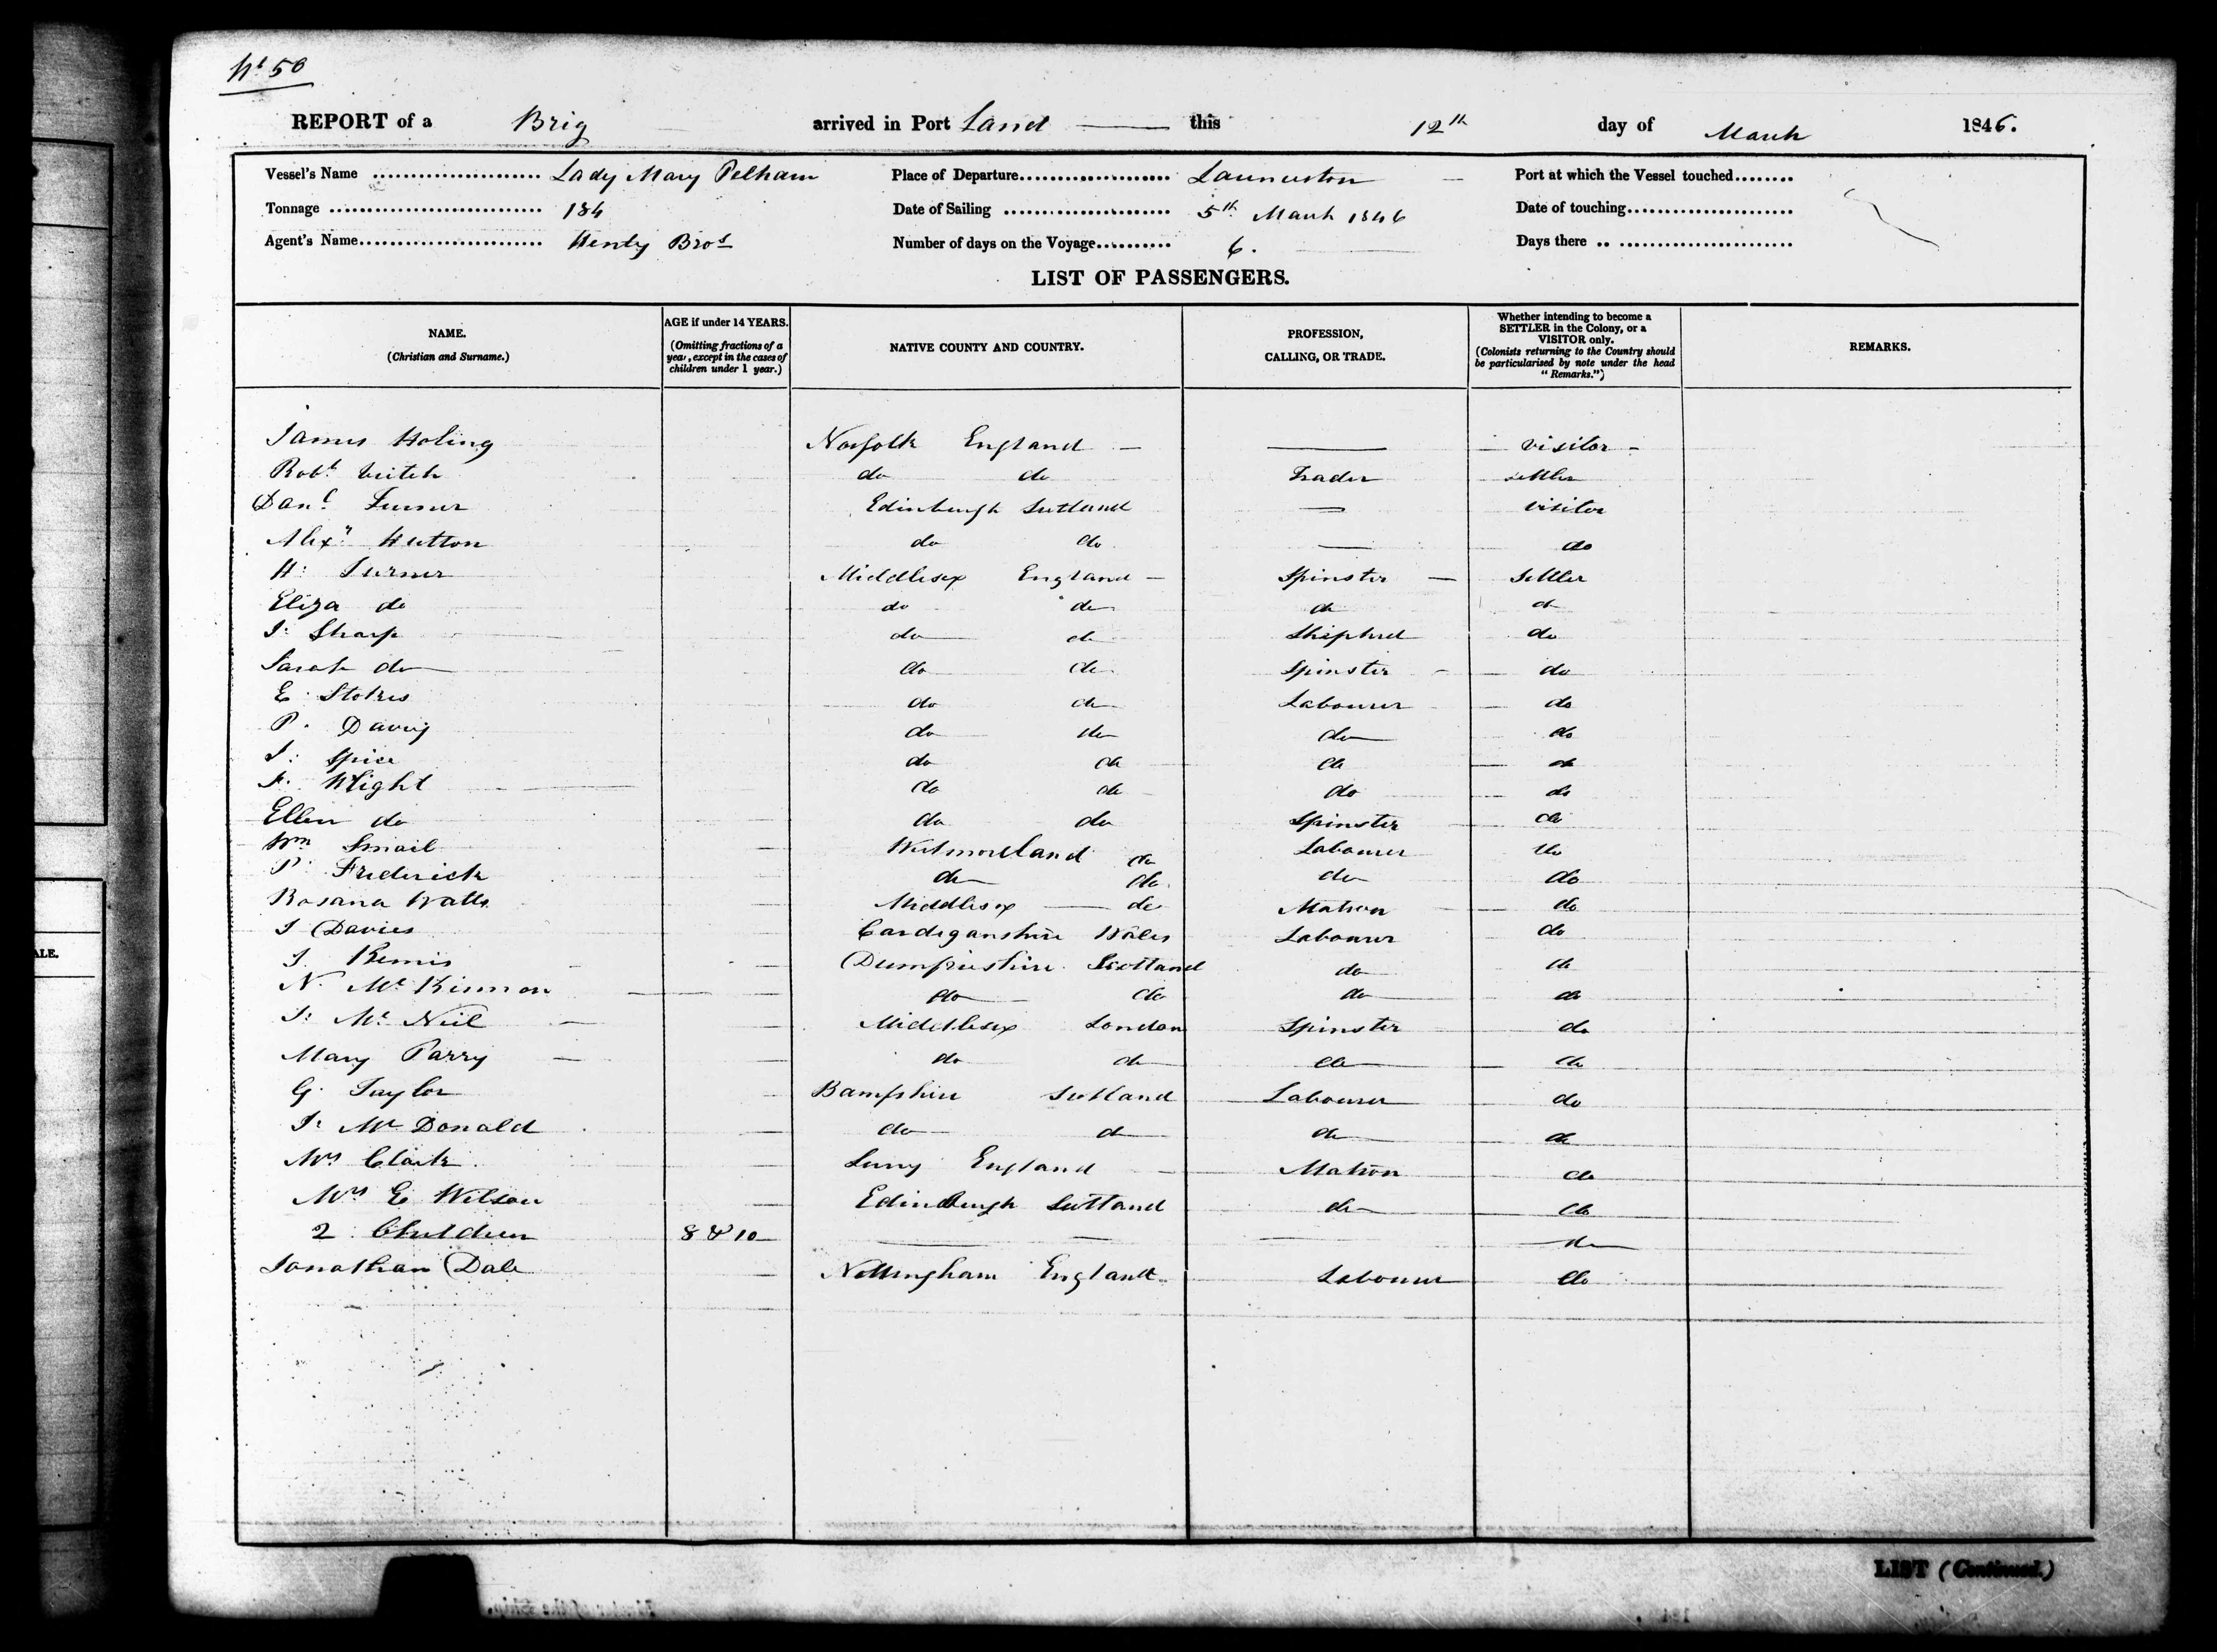 No 50
REPORT of a Brig arrived in Port Land this 12th day of March 1846.
Vessel's Name Lady Mary Pelham Place of Departure Launceston Port at which the Vessel touched
Tonnage 184 Date of Sailing 5th March 1846 Date of touching
Agent's Name Henty Bros Number of days on the Voyage 6. Days there
LIST OF PASSENGERS.
NAME. (Christian and Surname.)
AGE if under 14 YEARS. (Omitting fractions of a year, except in the cases of children under 1 year.)
NATIVE COUNTY AND COUNTRY.
PROFESSION, CALLING, OR TRADE.
Whether intending to become a SETTLER in the Colony, or a VISITOR only. (Colonists returning to the Country should be particularised by note under the head "Remarks.")
REMARKS.
James Holing Norfolk England — visitor
Robt Veitch do do Trader settler
Danl Edinburgh Scotland — visitor
Alexr Hutton do do — do
H: Turner Middlesex England Spinster Settler
Eliza do do do do do
J: Sharp do do Shepherd do
Sarah do do do Spinster do
E. Stokes do do Labourer do
P. Davey do do do do
J: Spice do do do do
Wright do do do do
Ellen do do do Spinster do
Wm Smail Westmoreland do Labourer do
P. Frederick do do do do
Rosana Watts Middlesex do Matron do
J Davies Cardiganshire Wales Labourer do
J. Dumfriesshire Scotland do do
N. McKinnon do do do do
J: McNeil Middlesex London Spinster do
Mary Parry do do do do
G. Taylor Bamfshire Scotland Labourer do
J: McDonald do do do do
Mrs Clark England Matron do
Mrs E Wilson Edinburgh Scotland do do
2 Children 8 & 10 — — do
Jonathan Dale Nottingham England Labourer do
LIST (Continued.)